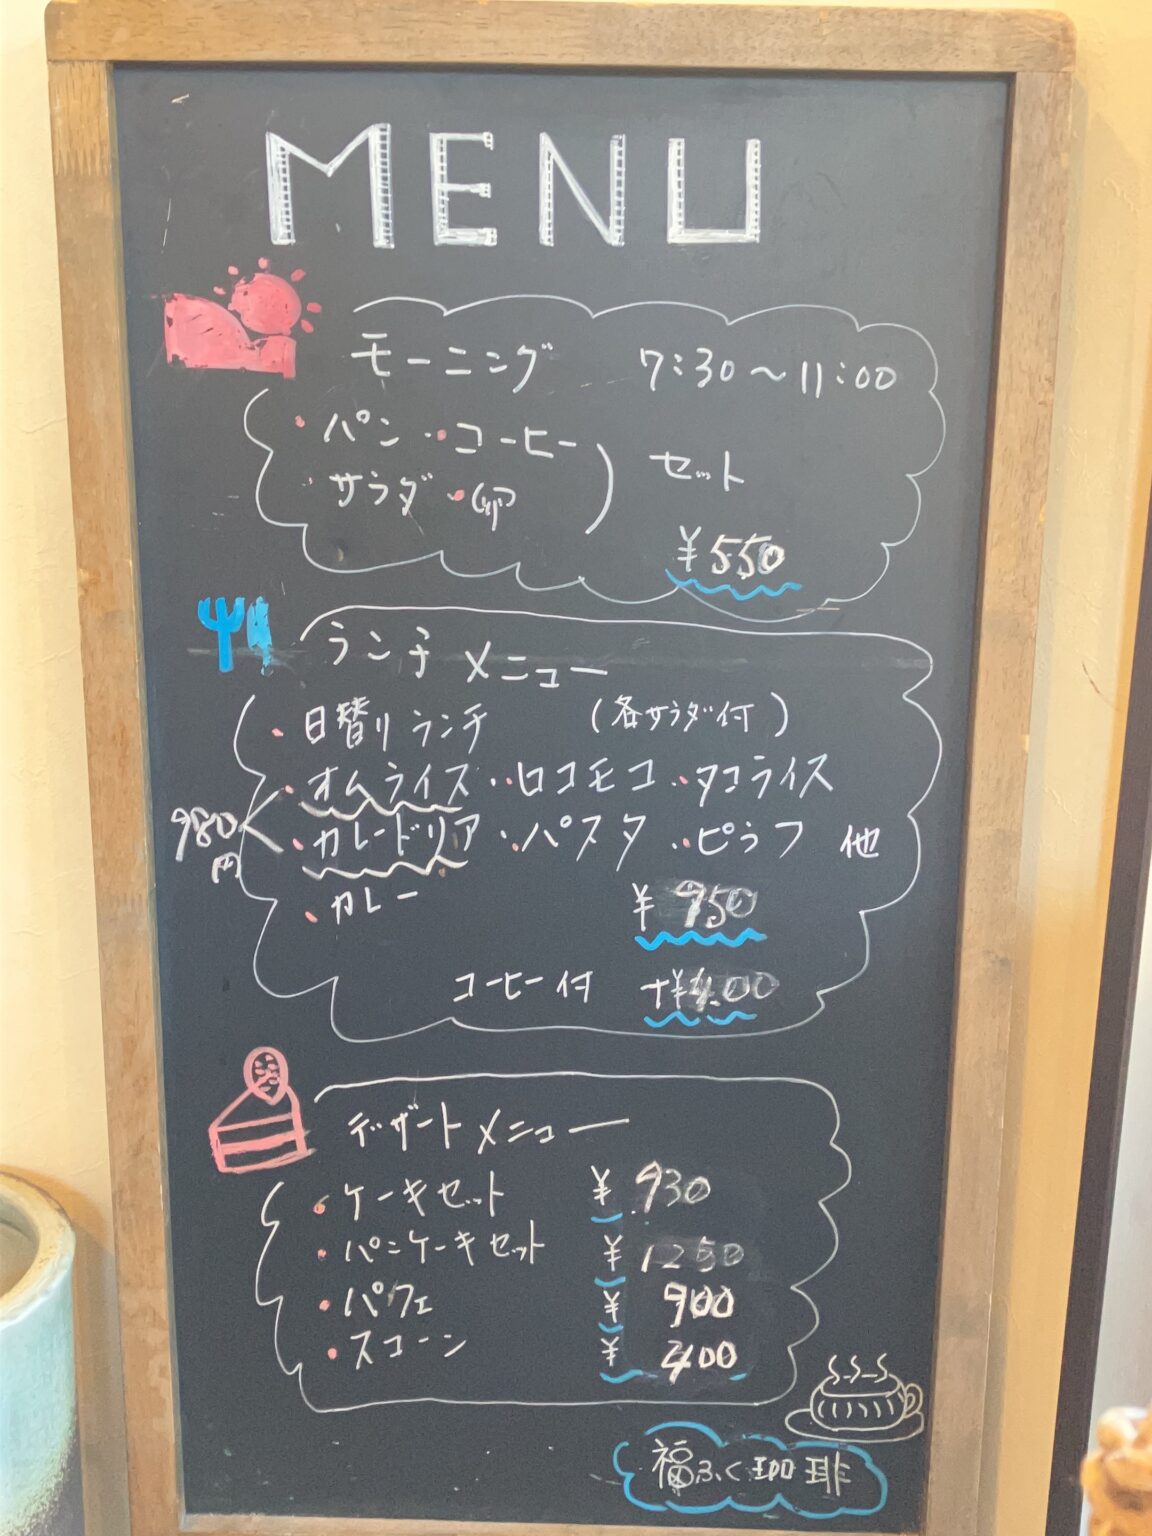 MENU
モーニング 7:30～11:00
・パン ・コーヒー
・サラダ ・卵
セット
¥550
ランチメニュー
・日替りランチ (各サラダ付)
・オムライス ・ロコモコ ・タコライス
980円
・カレードリア ・パスタ ・ピラフ 他
・カレー ¥950
コーヒー付 +¥400
デザートメニュー
・ケーキセット ¥930
・パンケーキセット ¥1250
・パフェ ¥900
・スコーン ¥400
福ふく珈琲